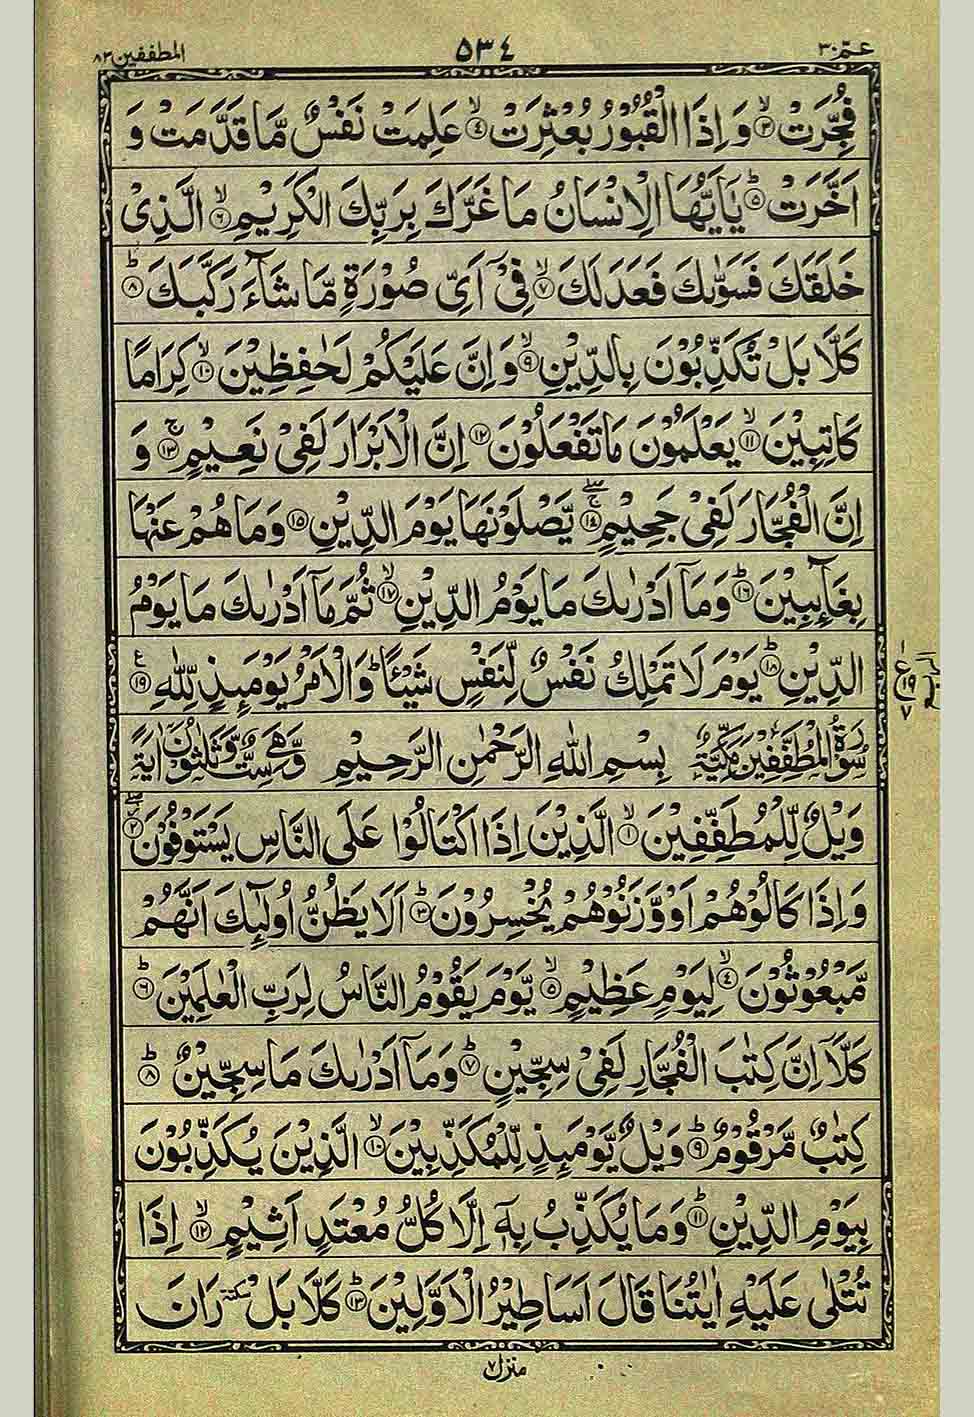 عمّ ٣٠ ٥٣٤ المطففين ٨٣
فُجِّرَتْ ﴿٣﴾ۙ وَ اِذَا الْقُبُوْرُ بُعْثِرَتْ ﴿٤﴾ۙ عَلِمَتْ نَفْسٌ مَّا قَدَّمَتْ وَ
اَخَّرَتْ ﴿٥﴾ؕ يٰۤاَيُّهَا الْاِنْسَانُ مَا غَرَّكَ بِرَبِّكَ الْكَرِيْمِ ﴿٦﴾ۙ الَّذِيْ
خَلَقَكَ فَسَوّٰىكَ فَعَدَلَكَ ﴿٧﴾ۙ فِيْۤ اَيِّ صُوْرَةٍ مَّا شَآءَ رَكَّبَكَ ﴿٨﴾ؕ
كَلَّا بَلْ تُكَذِّبُوْنَ بِالدِّيْنِ ﴿٩﴾ۙ وَ اِنَّ عَلَيْكُمْ لَحٰفِظِيْنَ ﴿١٠﴾ۙ كِرَامًا
كَاتِبِيْنَ ﴿١١﴾ۙ يَعْلَمُوْنَ مَا تَفْعَلُوْنَ ﴿١٢﴾ اِنَّ الْاَبْرَارَ لَفِيْ نَعِيْمٍ ﴿١٣﴾ۚ وَ
اِنَّ الْفُجَّارَ لَفِيْ جَحِيْمٍ ﴿١٤﴾ۚۖ يَّصْلَوْنَهَا يَوْمَ الدِّيْنِ ﴿١٥﴾ وَ مَا هُمْ عَنْهَا
بِغَآىِٕبِيْنَ ﴿١٦﴾ؕ وَ مَاۤ اَدْرٰىكَ مَا يَوْمُ الدِّيْنِ ﴿١٧﴾ۙ ثُمَّ مَاۤ اَدْرٰىكَ مَا يَوْمُ
الدِّيْنِ ﴿١٨﴾ؕ يَوْمَ لَا تَمْلِكُ نَفْسٌ لِّنَفْسٍ شَيْـًٔا ؕ وَ الْاَمْرُ يَوْمَىِٕذٍ لِّلّٰهِ ﴿١٩﴾ ع
سُوْرَةُ الْمُطَفِّفِيْنَ مَكِّيَّةٌ بِسْمِ اللّٰهِ الرَّحْمٰنِ الرَّحِيْمِ وَّ هِيَ سِتٌّ وَّ ثَلٰثُوْنَ اٰيَةً
وَيْلٌ لِّلْمُطَفِّفِيْنَ ﴿١﴾ۙ الَّذِيْنَ اِذَا اكْتَالُوْا عَلَى النَّاسِ يَسْتَوْفُوْنَ ﴿٢﴾ؗۖ
وَ اِذَا كَالُوْهُمْ اَوْ وَّزَنُوْهُمْ يُخْسِرُوْنَ ﴿٣﴾ؕ اَلَا يَظُنُّ اُولٰٓىِٕكَ اَنَّهُمْ
مَّبْعُوْثُوْنَ ﴿٤﴾ۙ لِيَوْمٍ عَظِيْمٍ ﴿٥﴾ۙ يَّوْمَ يَقُوْمُ النَّاسُ لِرَبِّ الْعٰلَمِيْنَ ﴿٦﴾ؕ
كَلَّاۤ اِنَّ كِتٰبَ الْفُجَّارِ لَفِيْ سِجِّيْنٍ ﴿٧﴾ؕ وَ مَاۤ اَدْرٰىكَ مَا سِجِّيْنٌ ﴿٨﴾ؕ
كِتٰبٌ مَّرْقُوْمٌ ﴿٩﴾ؕ وَيْلٌ يَّوْمَىِٕذٍ لِّلْمُكَذِّبِيْنَ ﴿١٠﴾ۙ الَّذِيْنَ يُكَذِّبُوْنَ
بِيَوْمِ الدِّيْنِ ﴿١١﴾ؕ وَ مَا يُكَذِّبُ بِهٖۤ اِلَّا كُلُّ مُعْتَدٍ اَثِيْمٍ ﴿١٢﴾ۙ اِذَا
تُتْلٰى عَلَيْهِ اٰيٰتُنَا قَالَ اَسَاطِيْرُ الْاَوَّلِيْنَ ﴿١٣﴾ؕ كَلَّا بَلْ سكتة رَانَ
منزل ٧